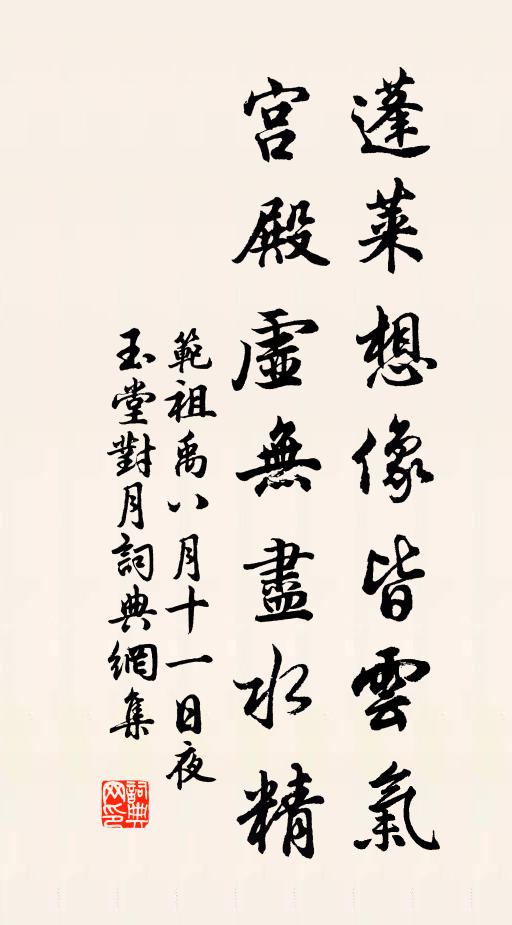 蓬萊想像皆雲氣
宮殿虛無盡水精
範祖禹八月十一日夜
玉堂對月詞典網集
詞典
网印